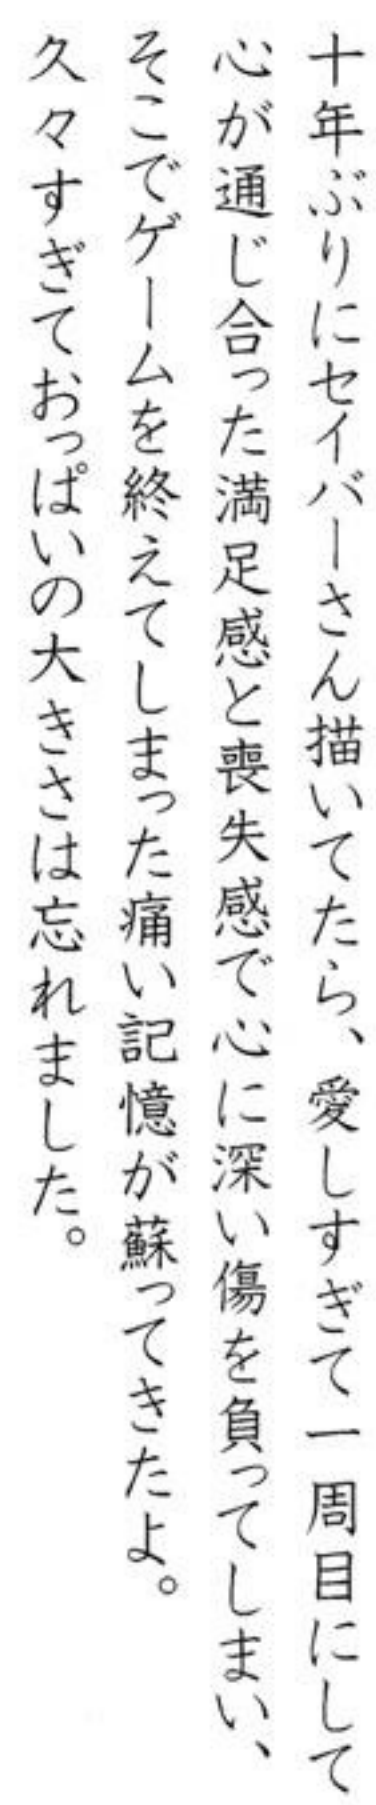 十年ぶりにセイバーさん描いてたら、愛しすぎて一周目にして
心が通じ合った満足感と喪失感で心に深い傷を負ってしまい、
そこでゲームを終えてしまった痛い記憶が蘇ってきたよ。
久々すぎておっぱいの大きさは忘れました。